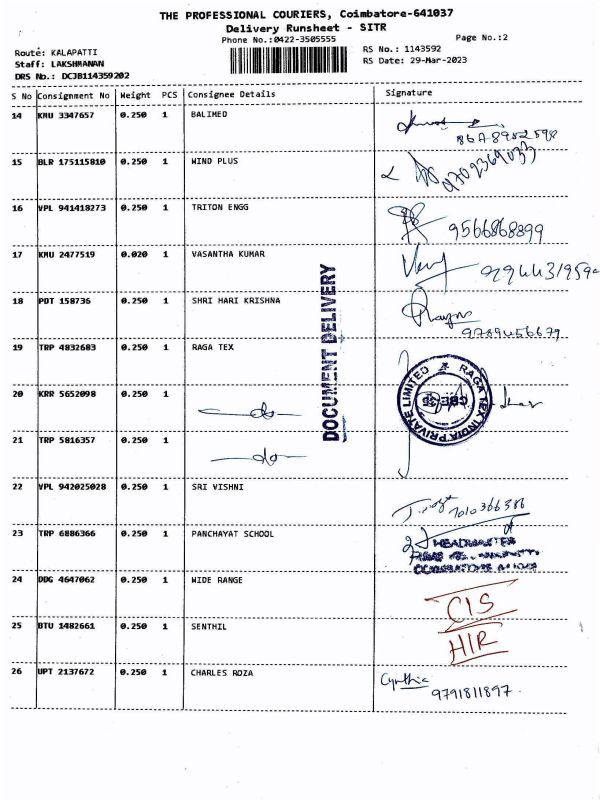 THE PROFESSIONAL COURIERS, Coimbatore-641037
Delivery Runsheet - SITR
Phone No.:0422-3505555
Page No.:2
Route: KALAPATTI
Staff: LAKSHMANAN
DRS No.: DCJB114359202
RS No.: 1143592
RS Date: 29-Mar-2023
S No Consignment No Weight PCS Consignee Details Signature
14 KMU 3347657 0.250 1 BALIMED
15 BLR 175115810 0.250 1 WIND PLUS
16 VPL 941418273 0.250 1 TRITON ENGG 9566868899
17 KMU 2477519 0.020 1 VASANTHA KUMAR
18 PDT 158736 0.250 1 SHRI HARI KRISHNA 9789456679
DOCUMENT DELIVERY
19 TRP 4832683 0.250 1 RAGA TEX
RAGA TEX INDIA PRIVATE LIMITED
20 KRR 5652098 0.250 1 do
21 TRP 5816357 0.250 1 do
22 VPL 942025028 0.250 1 SRI VISHNI 7010366386
23 TRP 6886366 0.250 1 PANCHAYAT SCHOOL
HEADMASTER
24 DDG 4647062 0.250 1 WIDE RANGE CIS
25 BTU 1482661 0.250 1 SENTHIL HIR
26 UPT 2137672 0.250 1 CHARLES ROZA Cynthia
9791811897.